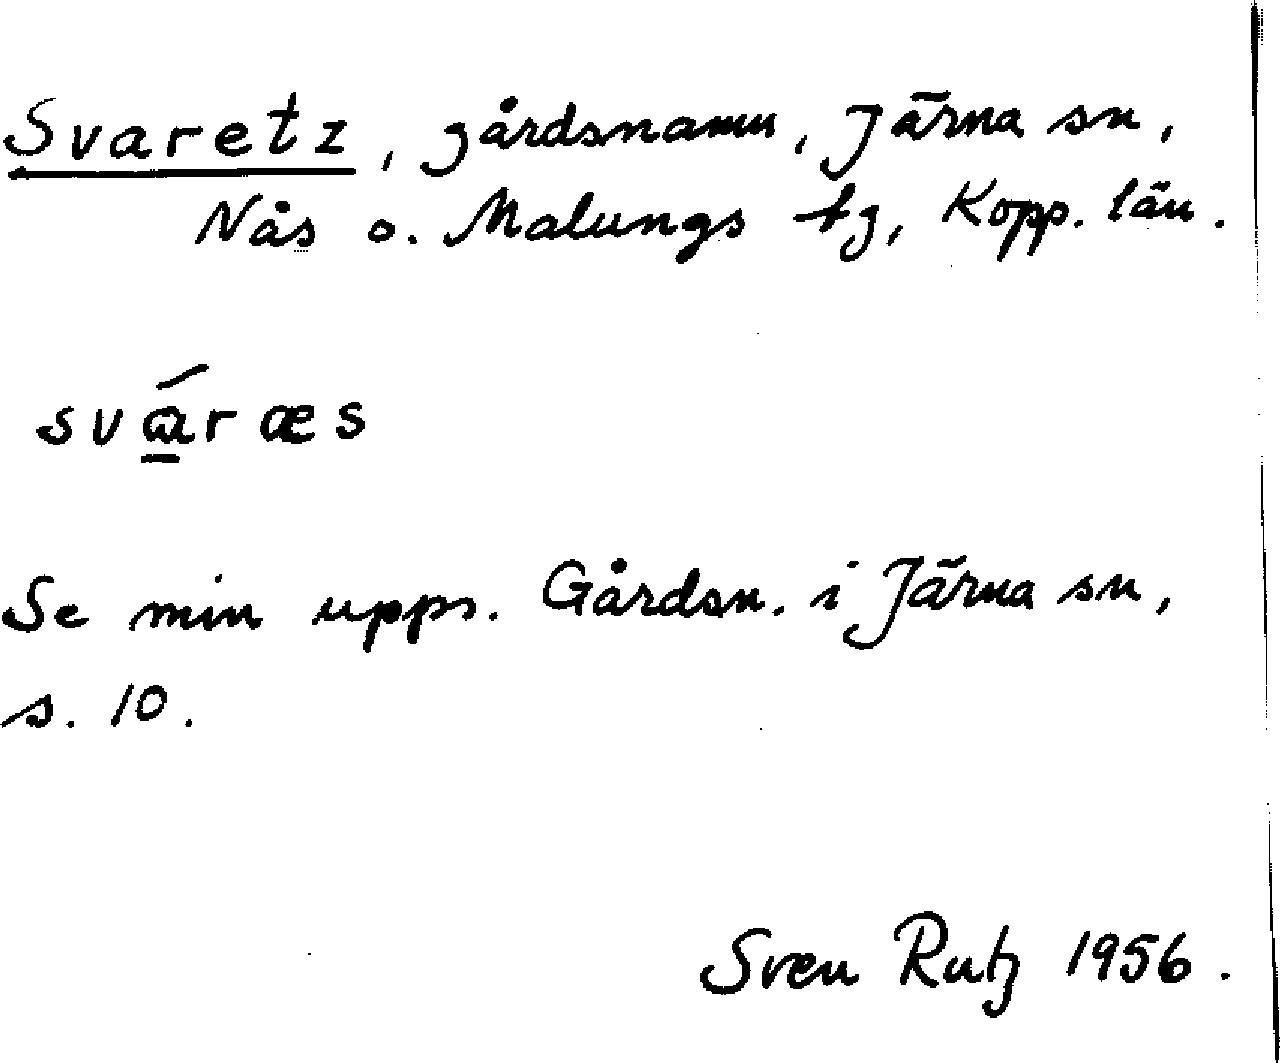 Svaretz, gårdsnamn, Järna sn,
Nås o. Malungs tg, Kopp. län.
svá̱ræs
Se min upps. Gårdsn. i Järna sn,
s. 10.
Sven Rutz 1956.